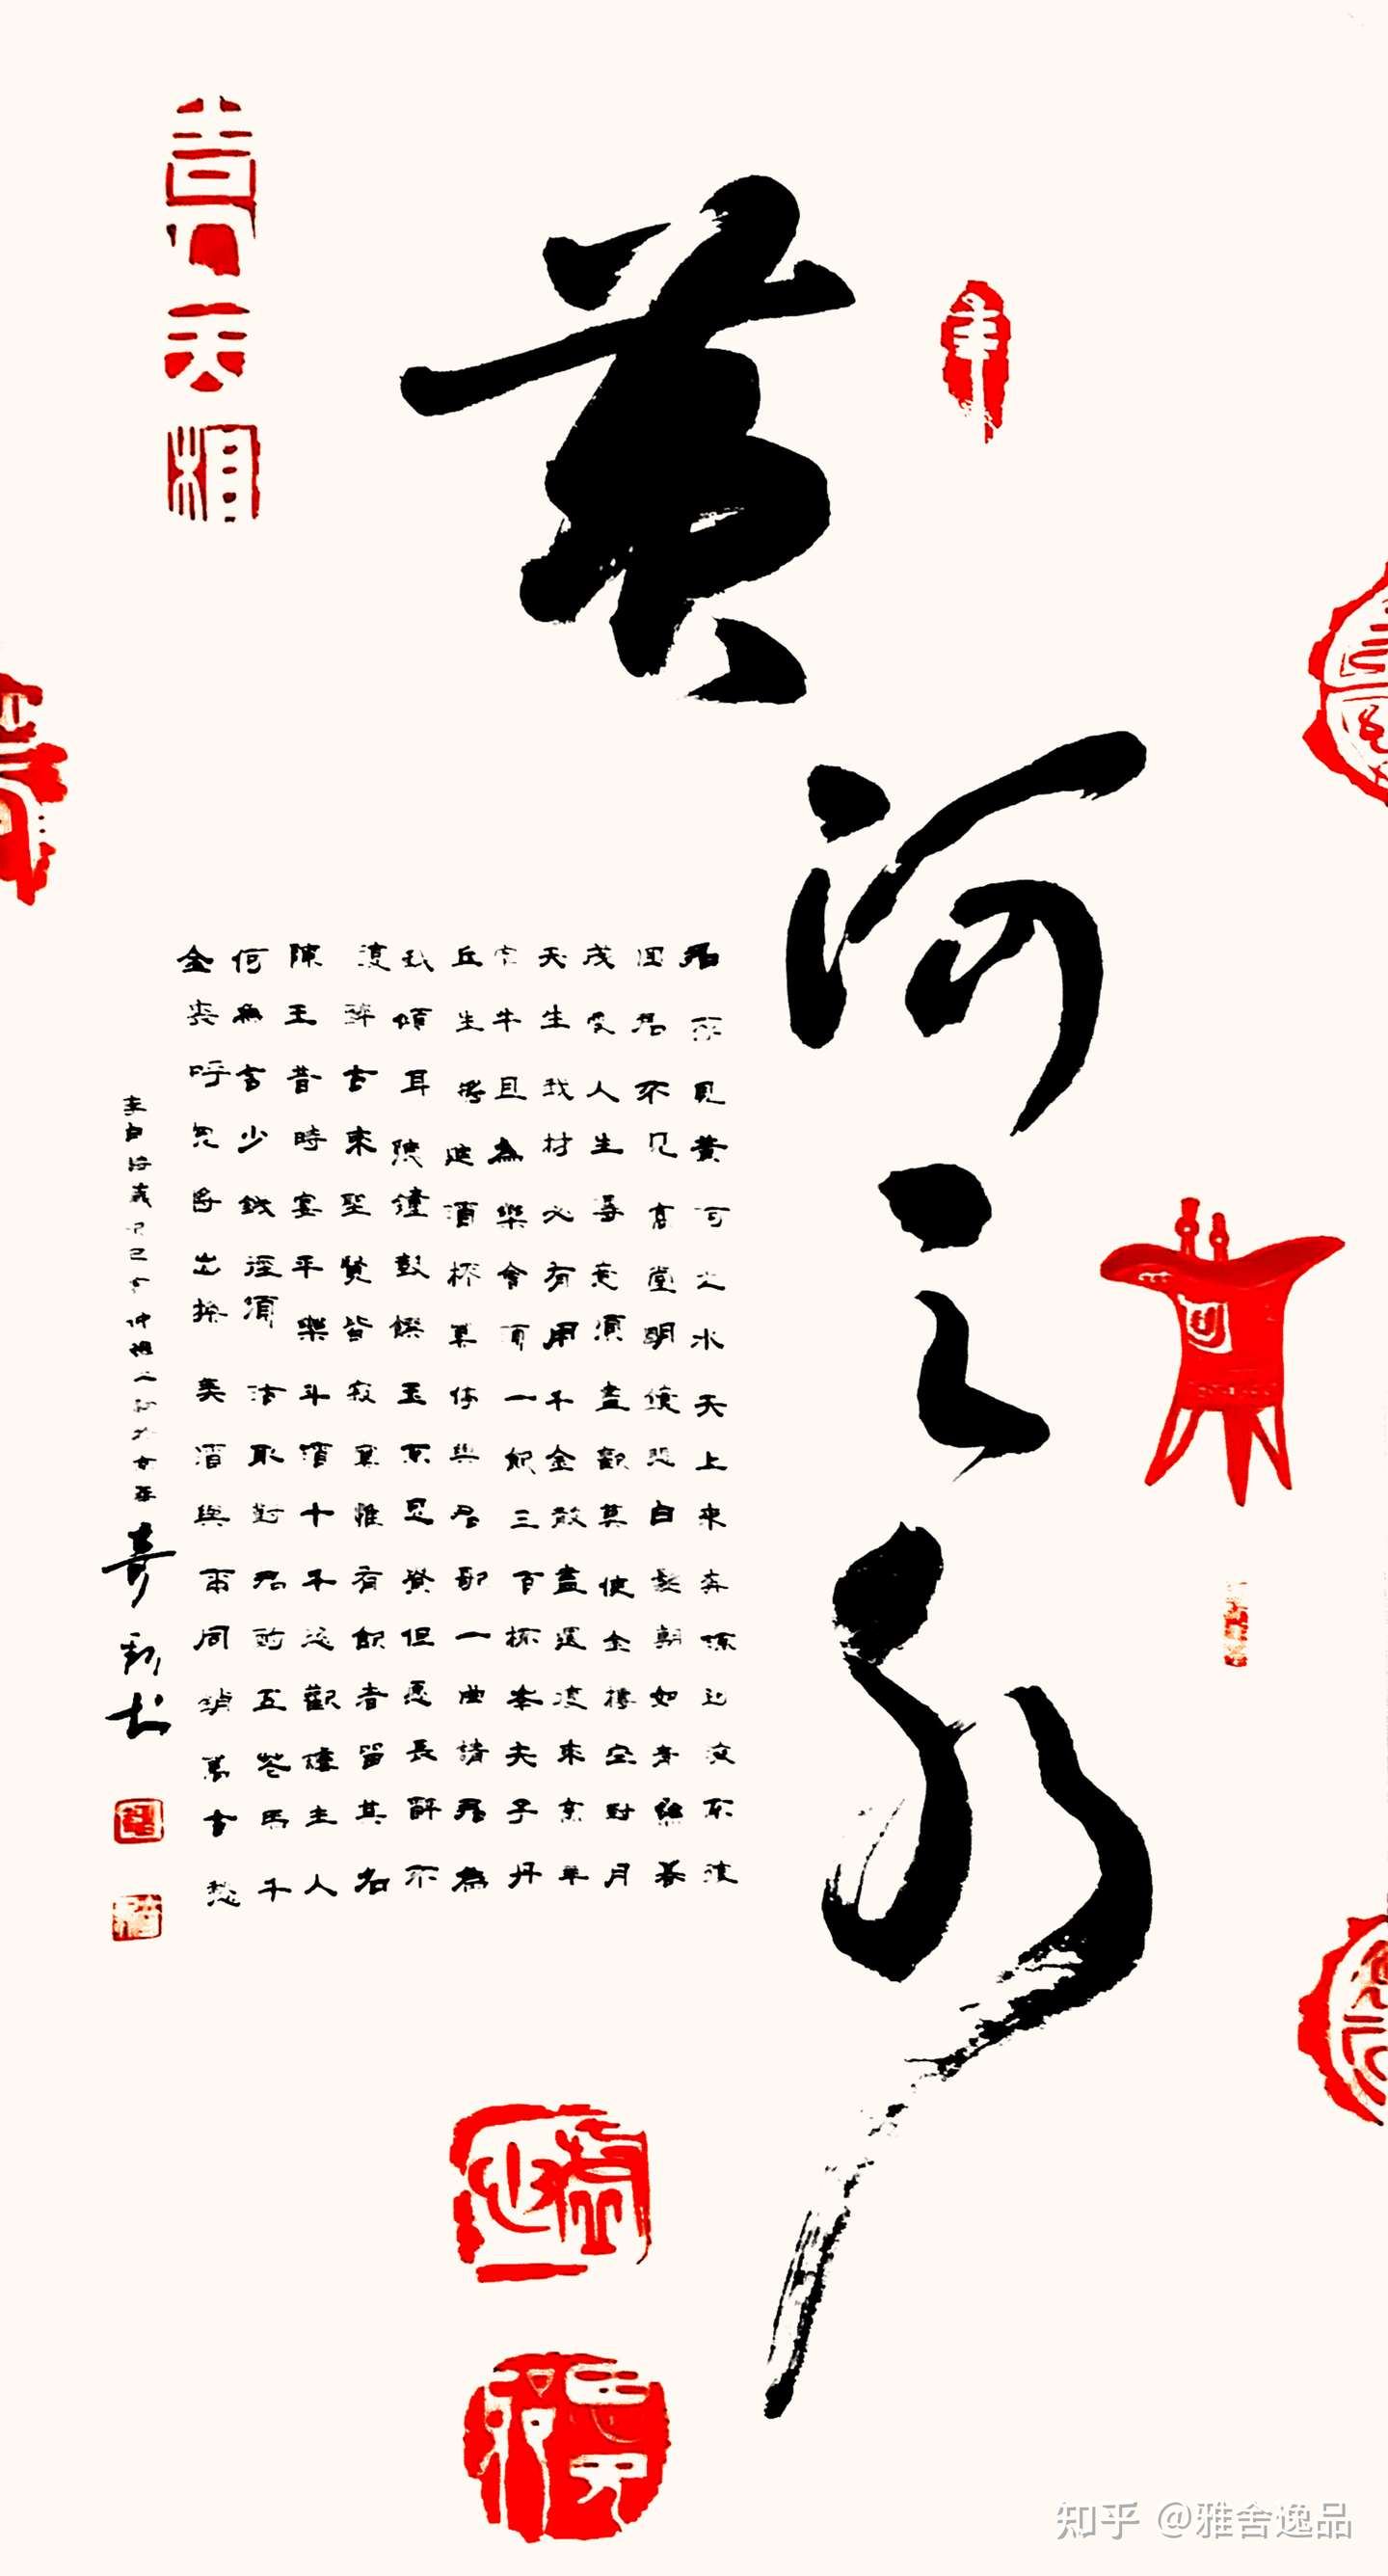 黄河之水
君不見黃河之水天上來奔流到海不復
回君不見高堂明鏡悲白髮朝如青絲暮
成雪人生得意須盡歡莫使金樽空對月
天生我材必有用千金散盡還復來烹羊
宰牛且為樂會須一飲三百杯岑夫子丹
丘生將進酒杯莫停與君歌一曲請君為
我傾耳聽鐘鼓饌玉不足貴但愿長醉不
復醒古來聖賢皆寂寞惟有飲者留其名
陳王昔時宴平樂斗酒十千恣歡謔主人
何為言少錢徑須沽取對君酌五花馬千
金裘呼兒將出換美酒與爾同銷萬古愁
李白詩
知乎 @雅舍逸品